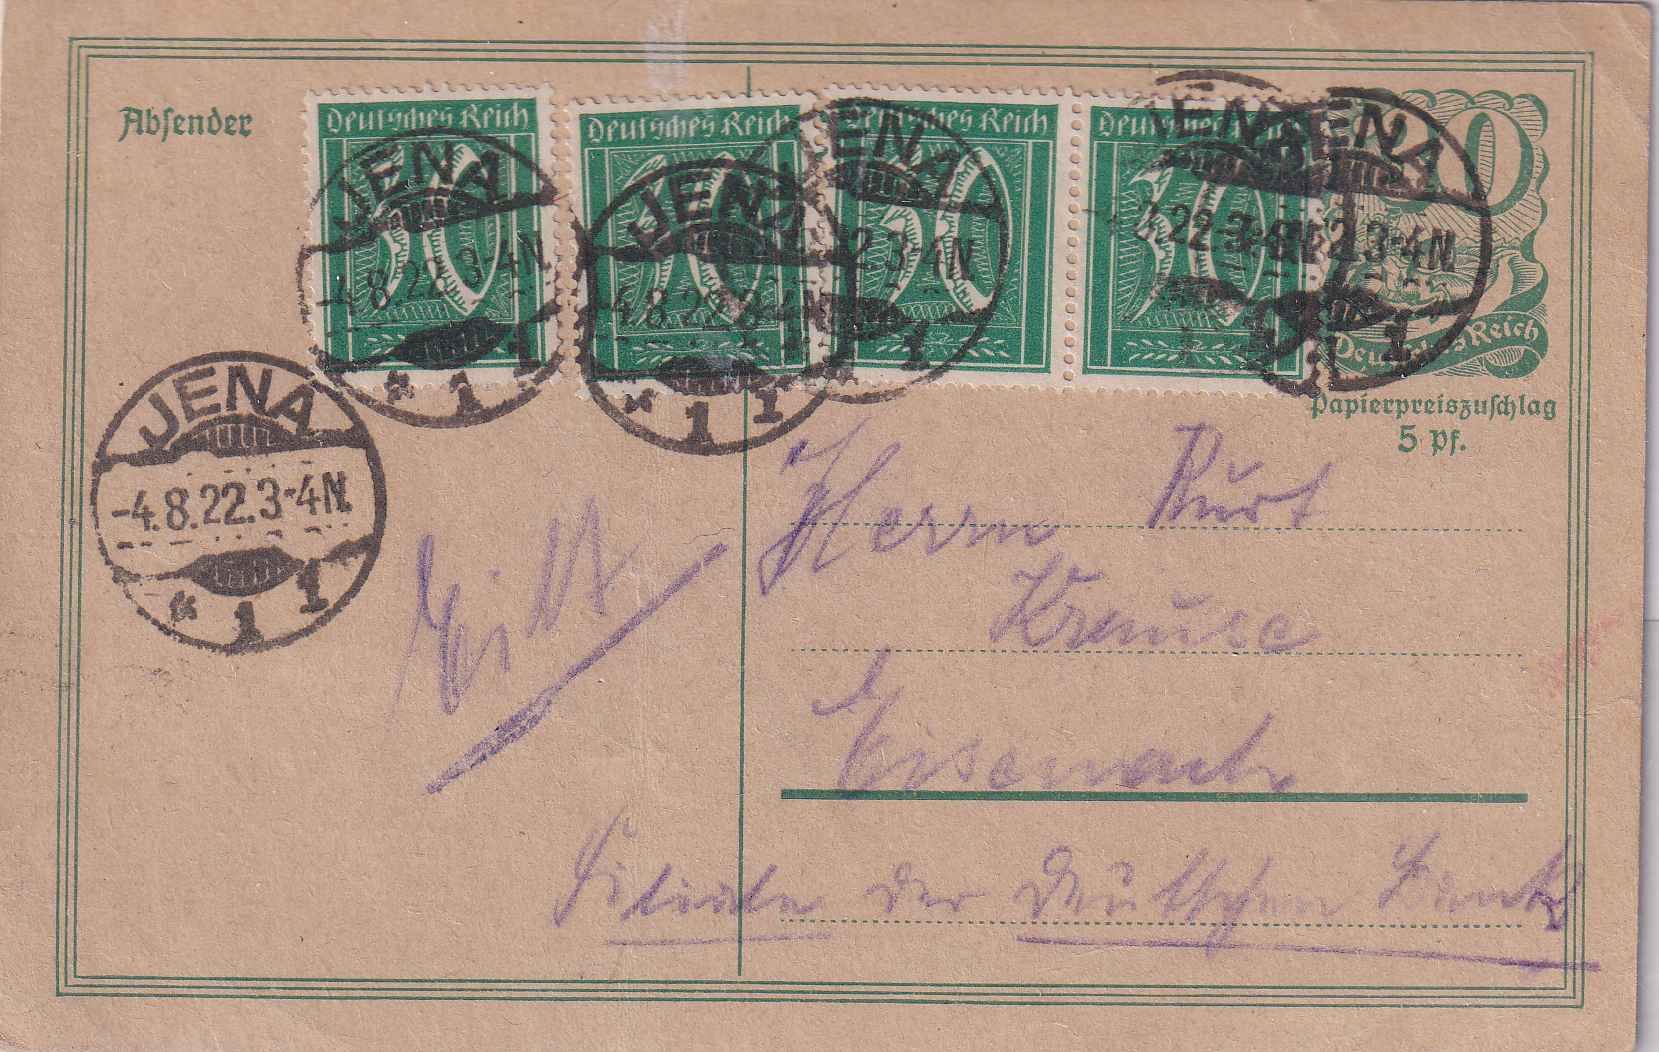 Absender
Deutsches Reich
Deutsches Reich
Deutsches Reich
Deutsches Reich
30
30
30
30
30
Deutsches Reich
JENA
-4.8.22.3-4N
* 1 1
JENA
-4.8.22.3-4N
* 1 1
JENA
2.3-4N
1
JENA
JENA
2.3-4N
1
JENA
-4.8.22.3-4N.
* 1 1
Papierpreiszuschlag
5 Pf.
Eilt
Herrn Kurt
Krause
Eisenach
Filiale der Deutschen Bank